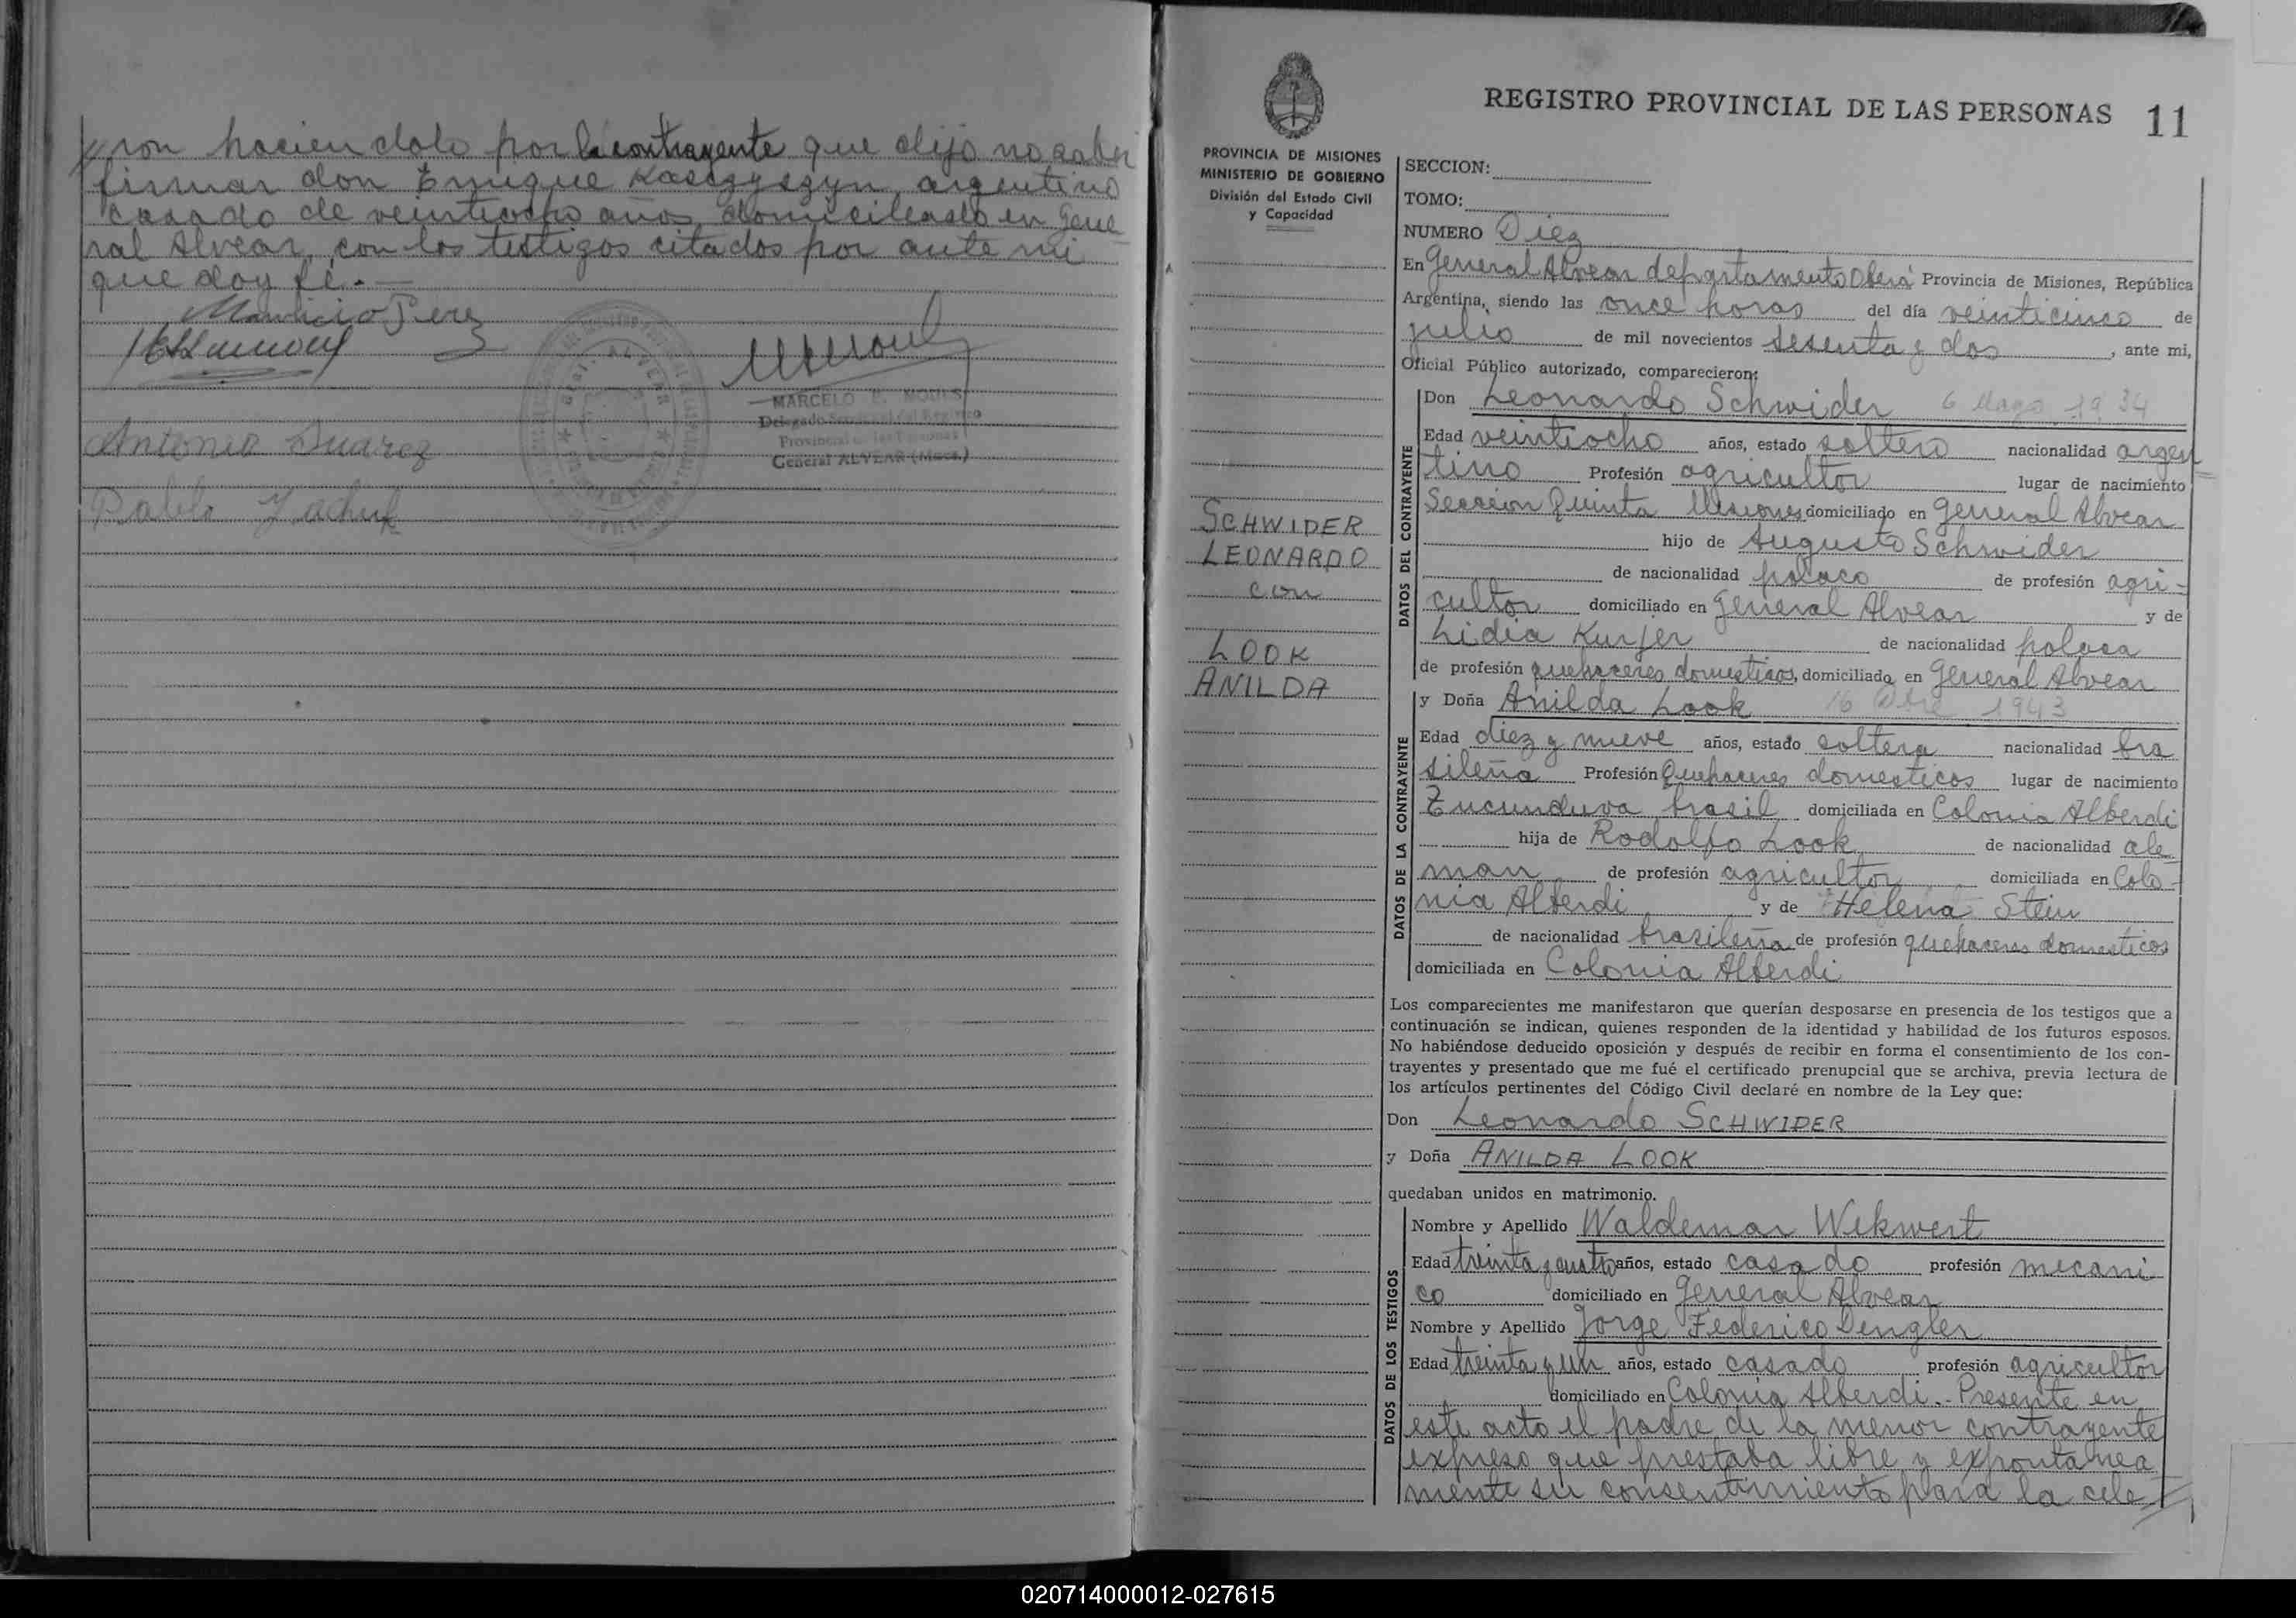 ron haciendolo por la contrayente que dijo no saber
firmar don Enrique argentino
casado de veintiocho años, domiciliado en Gene
ral Alvear, con los testigos citados por ante mi
que doy fé.-
Mauricio Perez
MARCELO E. MOULS
Delegado Seccional del Registro
Provincial de las Personas
General ALVEAR (Mnes.)
Antonio Suarez
Pablo
REGISTRO PROVINCIAL DE LAS PERSONAS 11
PROVINCIA DE MISIONES
MINISTERIO DE GOBIERNO
División del Estado Civil
y Capacidad
SCHWIDER
LEONARDO
con
LOOK
ANILDA
SECCION:
TOMO:
NUMERO Diez
En General Alvear departamento Oberá Provincia de Misiones, República
Argentina, siendo las once horas del día veinticinco de
julio de mil novecientos sesenta y dos, ante mi,
Oficial Público autorizado, comparecieron:
DATOS DEL CONTRAYENTE
Don Leonardo Schwider 6 Mayo 1934
Edad veintiocho años, estado soltero nacionalidad argen
tino Profesión agricultor lugar de nacimiento
Sección Quinta Misiones domiciliado en General Alvear
hijo de Augusto Schwider
de nacionalidad polaco de profesión agri-
cultor domiciliado en General Alvear y de
Lidia Kurjer de nacionalidad polaca
de profesión quehaceres domesticos, domiciliada en General Alvear
DATOS DE LA CONTRAYENTE
y Doña Anilda Look 16 Dbre 1943
Edad diez y nueve años, estado soltera nacionalidad bra
sileña Profesión Quehaceres domesticos lugar de nacimiento
Tucunduva brasil domiciliada en Colonia Alberdi
hija de Rodolfo Look de nacionalidad ale
man de profesión agricultor domiciliada en Colo-
nia Alberdi y de Helena Stein
de nacionalidad brasileña de profesión quehaceres domesticos
domiciliada en Colonia Alberdi
Los comparecientes me manifestaron que querían desposarse en presencia de los testigos que a
continuación se indican, quienes responden de la identidad y habilidad de los futuros esposos.
No habiéndose deducido oposición y después de recibir en forma el consentimiento de los con-
trayentes y presentado que me fué el certificado prenupcial que se archiva, previa lectura de
los artículos pertinentes del Código Civil declaré en nombre de la Ley que:
Don Leonardo SCHWIDER
y Doña ANILDA LOOK
quedaban unidos en matrimonio.
DATOS DE LOS TESTIGOS
Nombre y Apellido Waldemar Wekwert
Edad treinta y cuatro años, estado casado profesión mecani
co domiciliado en General Alvear
Nombre y Apellido Jorge Federico Dengler
Edad treinta y un años, estado casado profesión agricultor
domiciliado en Colonia Alberdi.- Presente en
este acto el padre de la menor contrayente
expreso que prestaba libre y expontanea
mente su consentimiento para la cele
020714000012-027615